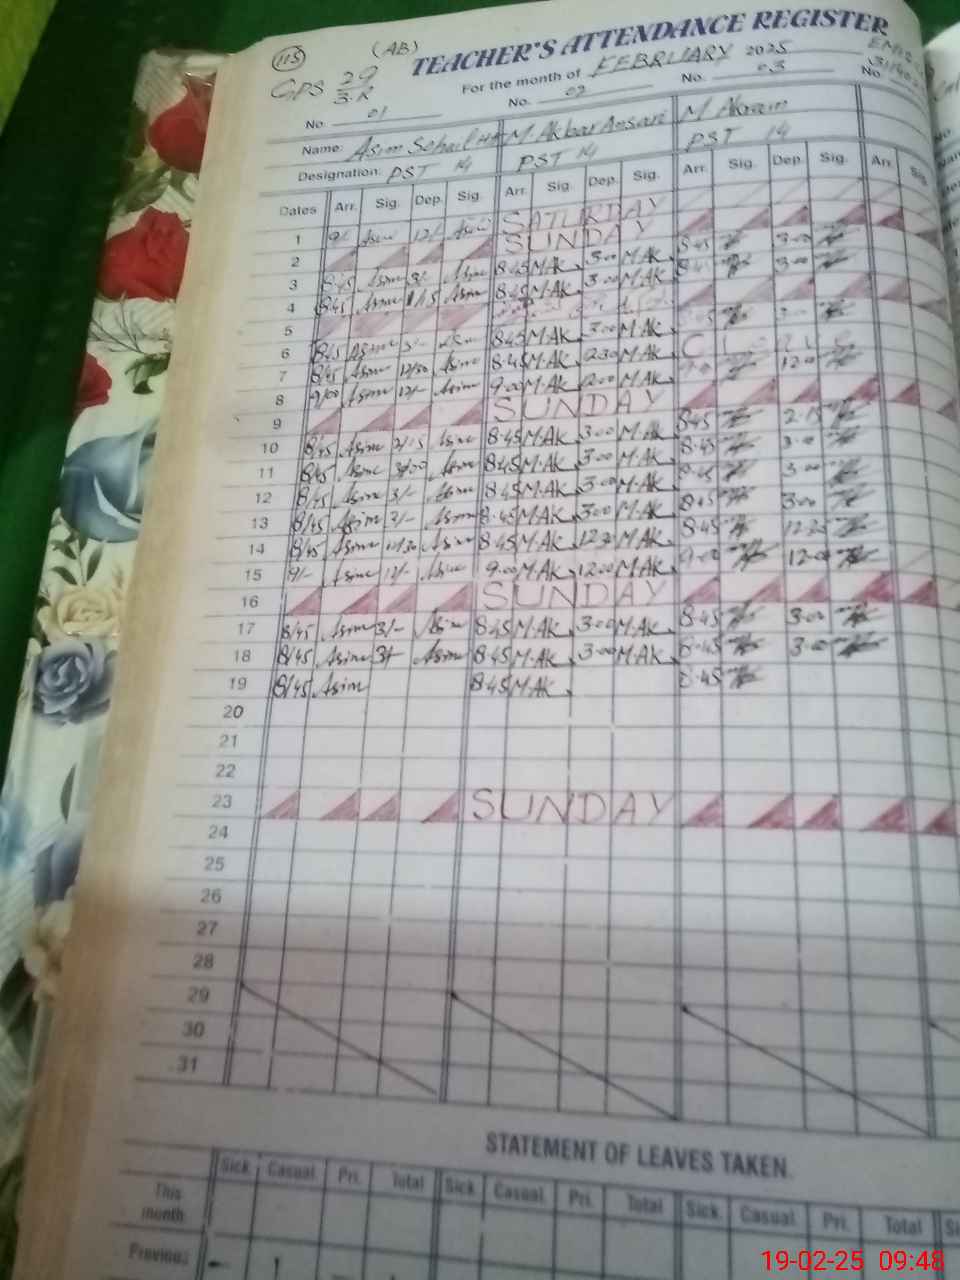 115 (AB) TEACHER'S ATTENDANCE REGISTER
GPS 29/3.R For the month of FEBRUARY 2025
No. 01 No. 02 No. 03 No.
Name: Asim Sohail M. Akbar Ansari M Akram
Designation: PST 14 PST 14 PST 14
Dates Arr. Sig. Dep. Sig. Arr. Sig. Dep. Sig. Arr. Sig. Dep. Sig. Arr.
1 9/- Asim 12/- Asim SATURDAY
2 SUNDAY
3 8/45 Asim 3/- Asim 8.45 M.AK 3.00 M.AK 8.45 3.00
4 8/45 Asim Asim 8.45 M.AK 3.00 M.AK 3.00
5
6 8/45 Asim 3/- Asim 8.45 M.AK 3.00 M.AK
7 8/45 Asim 12/30 Asim 8.45 M.AK 12.30 M.AK
8 9/00 Asim 12/- Asim 9.00 M.AK 12.00 M.AK 12.00
9 SUNDAY
10 8/45 Asim 3/15 Asim 8.45 M.AK 3.00 M.AK 8.45 2.15
11 8/45 Asim 3/00 Asim 8.45 M.AK 3.00 M.AK 8.45 3.00
12 8/45 Asim 3/- Asim 8.45 M.AK 3.00 M.AK 8.45 3.00
13 8/45 Asim 3/- Asim 8.45 M.AK 3.00 M.AK 8.45 3.00
14 8/45 Asim 12/30 Asim 8.45 M.AK 12.30 M.AK 8.45
15 9/- Asim 12/- Asim 9.00 M.AK 12.00 M.AK 9.00 12.00
16 SUNDAY
17 8/45 Asim 3/- Asim 8.45 M.AK 3.00 M.AK 8.45 3.00
18 8/45 Asim 3/- Asim 8.45 M.AK 3.00 M.AK 8.45 3.00
19 8/45 Asim 8.45 M.AK 8.45
20
21
22
23 SUNDAY
24
25
26
27
28
29
30
31
STATEMENT OF LEAVES TAKEN.
Sick Casual. Pri. Total Sick. Casual. Pri. Total Sick. Casual. Pri. Total
This month
Previous
19-02-25 09:48